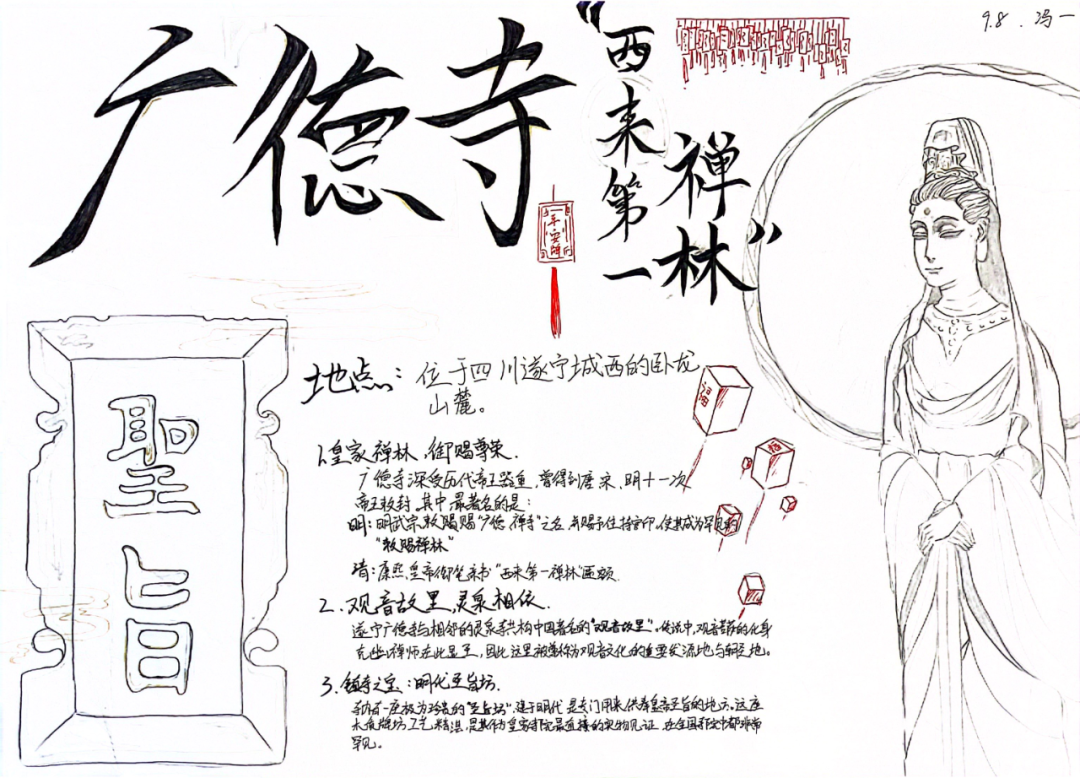 9.8 . 冯一
广德寺
“西来第一
禅林”
平安
聖旨
地点：位于四川遂宁城西的卧龙
山麓。
1.皇家禅林，御赐尊荣.
广德寺深受历代帝王器重，曾得到唐、宋、明十一次
帝王敕封，其中最著名的是：
明：明武宗敕赐赐“广德禅寺”之名，并赐予住持宝印，使其成为罕见的
“敕赐禅林”
清：康熙皇帝御笔亲书“西来第一禅林”匾额.
2.观音故里，灵泉相依.
遂宁广德寺与相邻的灵泉寺共构中国著名的“观音故里”。传说中，观音菩萨的化身
克幽禅师在此显圣，因此这里被尊称为观音文化的重要发源地与朝圣地。
3.镇寺之宝：明代圣旨坊.
寺内有一座极为珍贵的“圣旨坊”，建于明代，是专门用来供奉皇帝圣旨的地方。这座
木质牌坊工艺精湛，是其作为皇家寺院最直接的实物见证，在全国寺院中都非常
罕见。
福